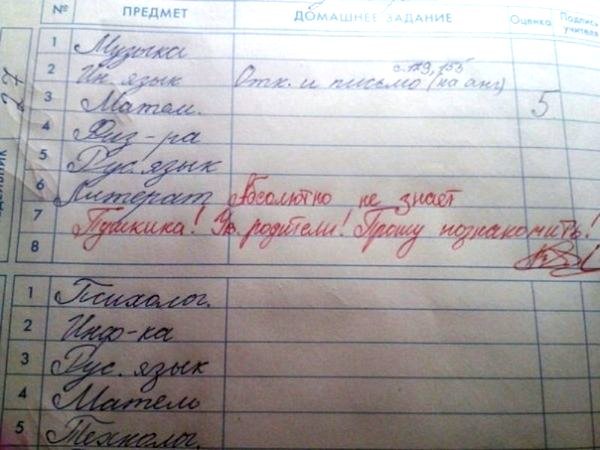 № ПРЕДМЕТ ДОМАШНЕЕ ЗАДАНИЕ Оценка Подпись учителя
1 Музыка
с. 129, 155
2 Ин. язык Отк. и письмо (на анг)
3 Матем. 5
4 Физ-ра
5 Рус. язык
6 Литерат Абсолютно не знает
7 Пушкина! Ув. родители! Прошу познакомить!
8
1 Психолог.
2 Инф-ка
3 Рус. язык
4 Матель
5 Технолог.
27